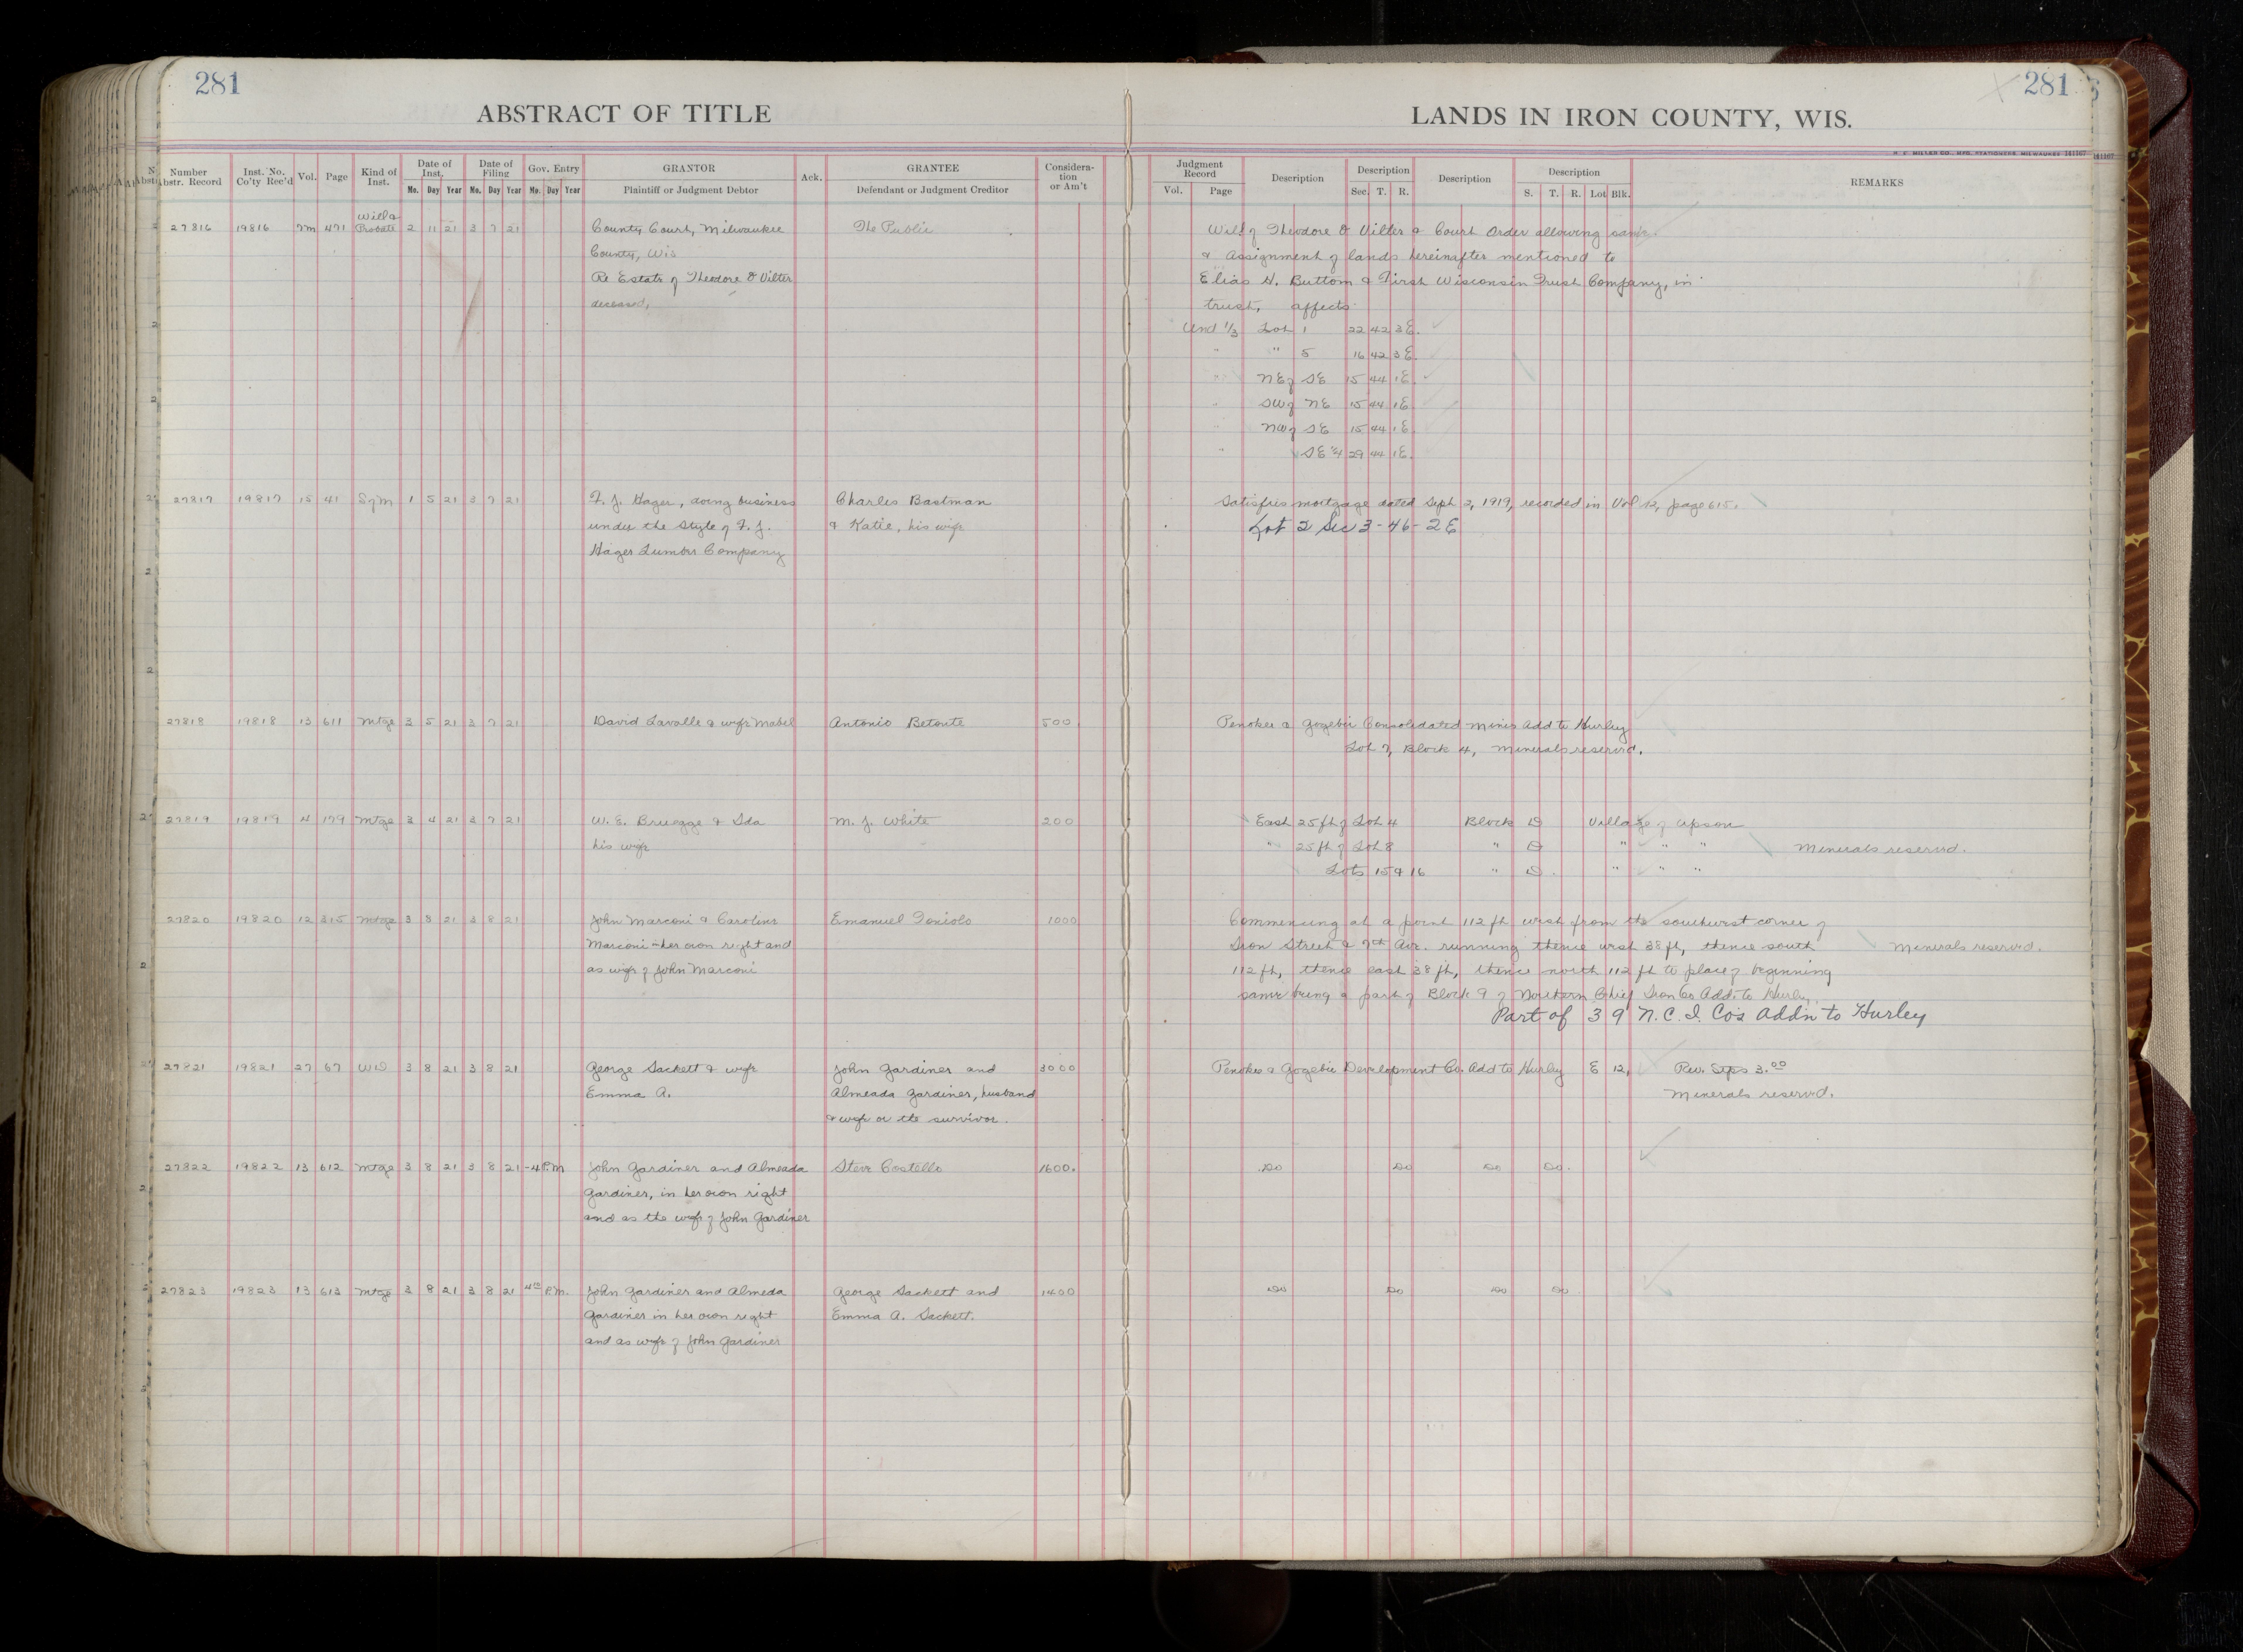 281
281
ABSTRACT OF TITLE
LANDS IN IRON COUNTY, WIS.
Number Abstr. Record
Inst. No. Co'ty Rec'd
Vol.
Page
Kind of Inst.
Date of Inst.
Mo. Day Year
Date of Filing
Mo. Day Year
Gov. Entry
Mo. Day Year
GRANTOR
Plaintiff or Judgment Debtor
Ack.
GRANTEE
Defendant or Judgment Creditor
Considera-tion or Am't
Judgment Record
Vol. Page
Description
Description
Sec. T. R.
Description
Description
S. T. R. Lot Blk.
REMARKS
Will &
27816 19816 7m 471 Probate 2 11 21 3 7 21 County Court, Milwaukee The Public Will of Theodore O Vilter & Court Order allowing same
County, Wis & Assignment of lands hereinafter mentioned to
Re Estate of Theodore O Vilter Elias H. Bottum & First Wisconsin Trust Company, in
deceased, trust, affects
Und 1/3 Lot 1 22 42 3E.
" " 5 16 42 3E.
" NE of SE 15 44 1E
" SW of NE 15 44 1E
" NW of SE 15 44 1E.
" SE 1/4 29 44 1E.
27817 19817 15 41 S of M 1 5 21 3 7 21 F. J. Hager, doing business Charles Bastman Satisfies mortgage dated Sept 2, 1919, recorded in Vol 12, page 615.
under the style of F. J. & Katie, his wife Lot 2 Sec 3-46-2E
Hager Lumber Company
27818 19818 13 611 Mtge 3 5 21 3 7 21 David Lavalle & wife Mabel Antonio Betonte 500 Penokee & Gogebic Consolidated Mines Add to Hurley
Lot 7, Block 4, Minerals reserved.
27819 19819 4 179 Mtge 3 4 21 3 7 21 W. E. Bruegge & Ida M. J. White 200 East 25 ft of Lot 4 Block D Village of Upson
his wife " 25 ft of Lot 8 " D " " " Minerals reserved.
Lots 15 & 16 " D. " " "
27820 19820 12 315 Mtge 3 8 21 3 8 21 John Marconi & Caroline Emanuel Toniolo 1000 Commencing at a point 112 ft west from the southwest corner of
Marconi in her own right and Iron Street & 7th Ave. running thence west 38 ft, thence south Minerals reserved.
as wife of John Marconi 112 ft, thence east 38 ft, thence north 112 ft to place of beginning
same being a part of Block 9 of Northern Chief Iron Co Add. to Hurley.
Part of 3 9 N. C. I. Co's Addn to Hurley
27821 19821 27 67 WD 3 8 21 3 8 21 George Sackett & wife John Gardiner and 3000 Penokee & Gogebic Development Co. Add to Hurley E 12, Rev. Stps 3.00
Emma A. Almeada Gardiner, husband Minerals reserved.
& wife or the survivor.
27822 19822 13 612 Mtge 3 8 21 3 8 21 -4 P.M John Gardiner and Almeada Steve Costello 1600. Do Do Do Do.
Gardiner, in her own right
and as the wife of John Gardiner
27823 19823 13 613 Mtge 3 8 21 3 8 21 4 10 P.M. John Gardiner and Almeda George Sackett and 1400 Do Do Do Do
Gardiner in her own right Emma A. Sackett.
and as wife of John Gardiner